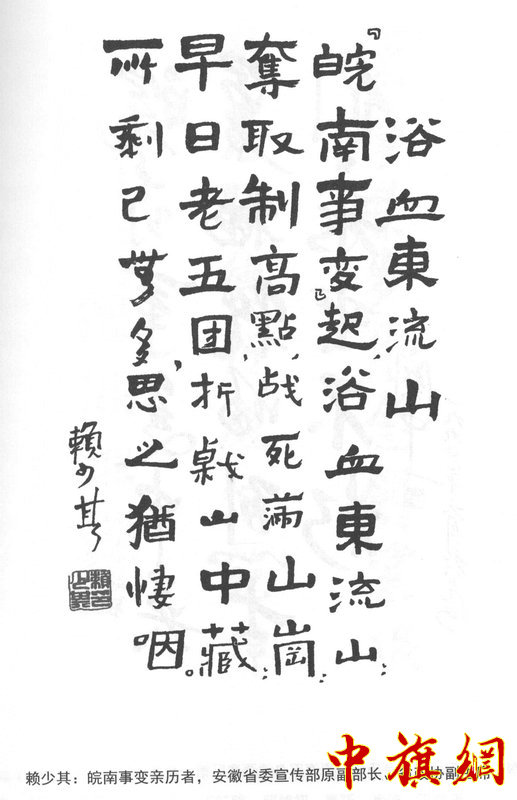 浴血東流山
『皖南事变』起，浴血東流山；
奪取制高點，战死满山崗；
早日老五团，折戟山中藏。
所剩已無多，思之猶悽咽。
賴少其
赖少其：皖南事变亲历者，安徽省委宣传部原副部长、
中旗網